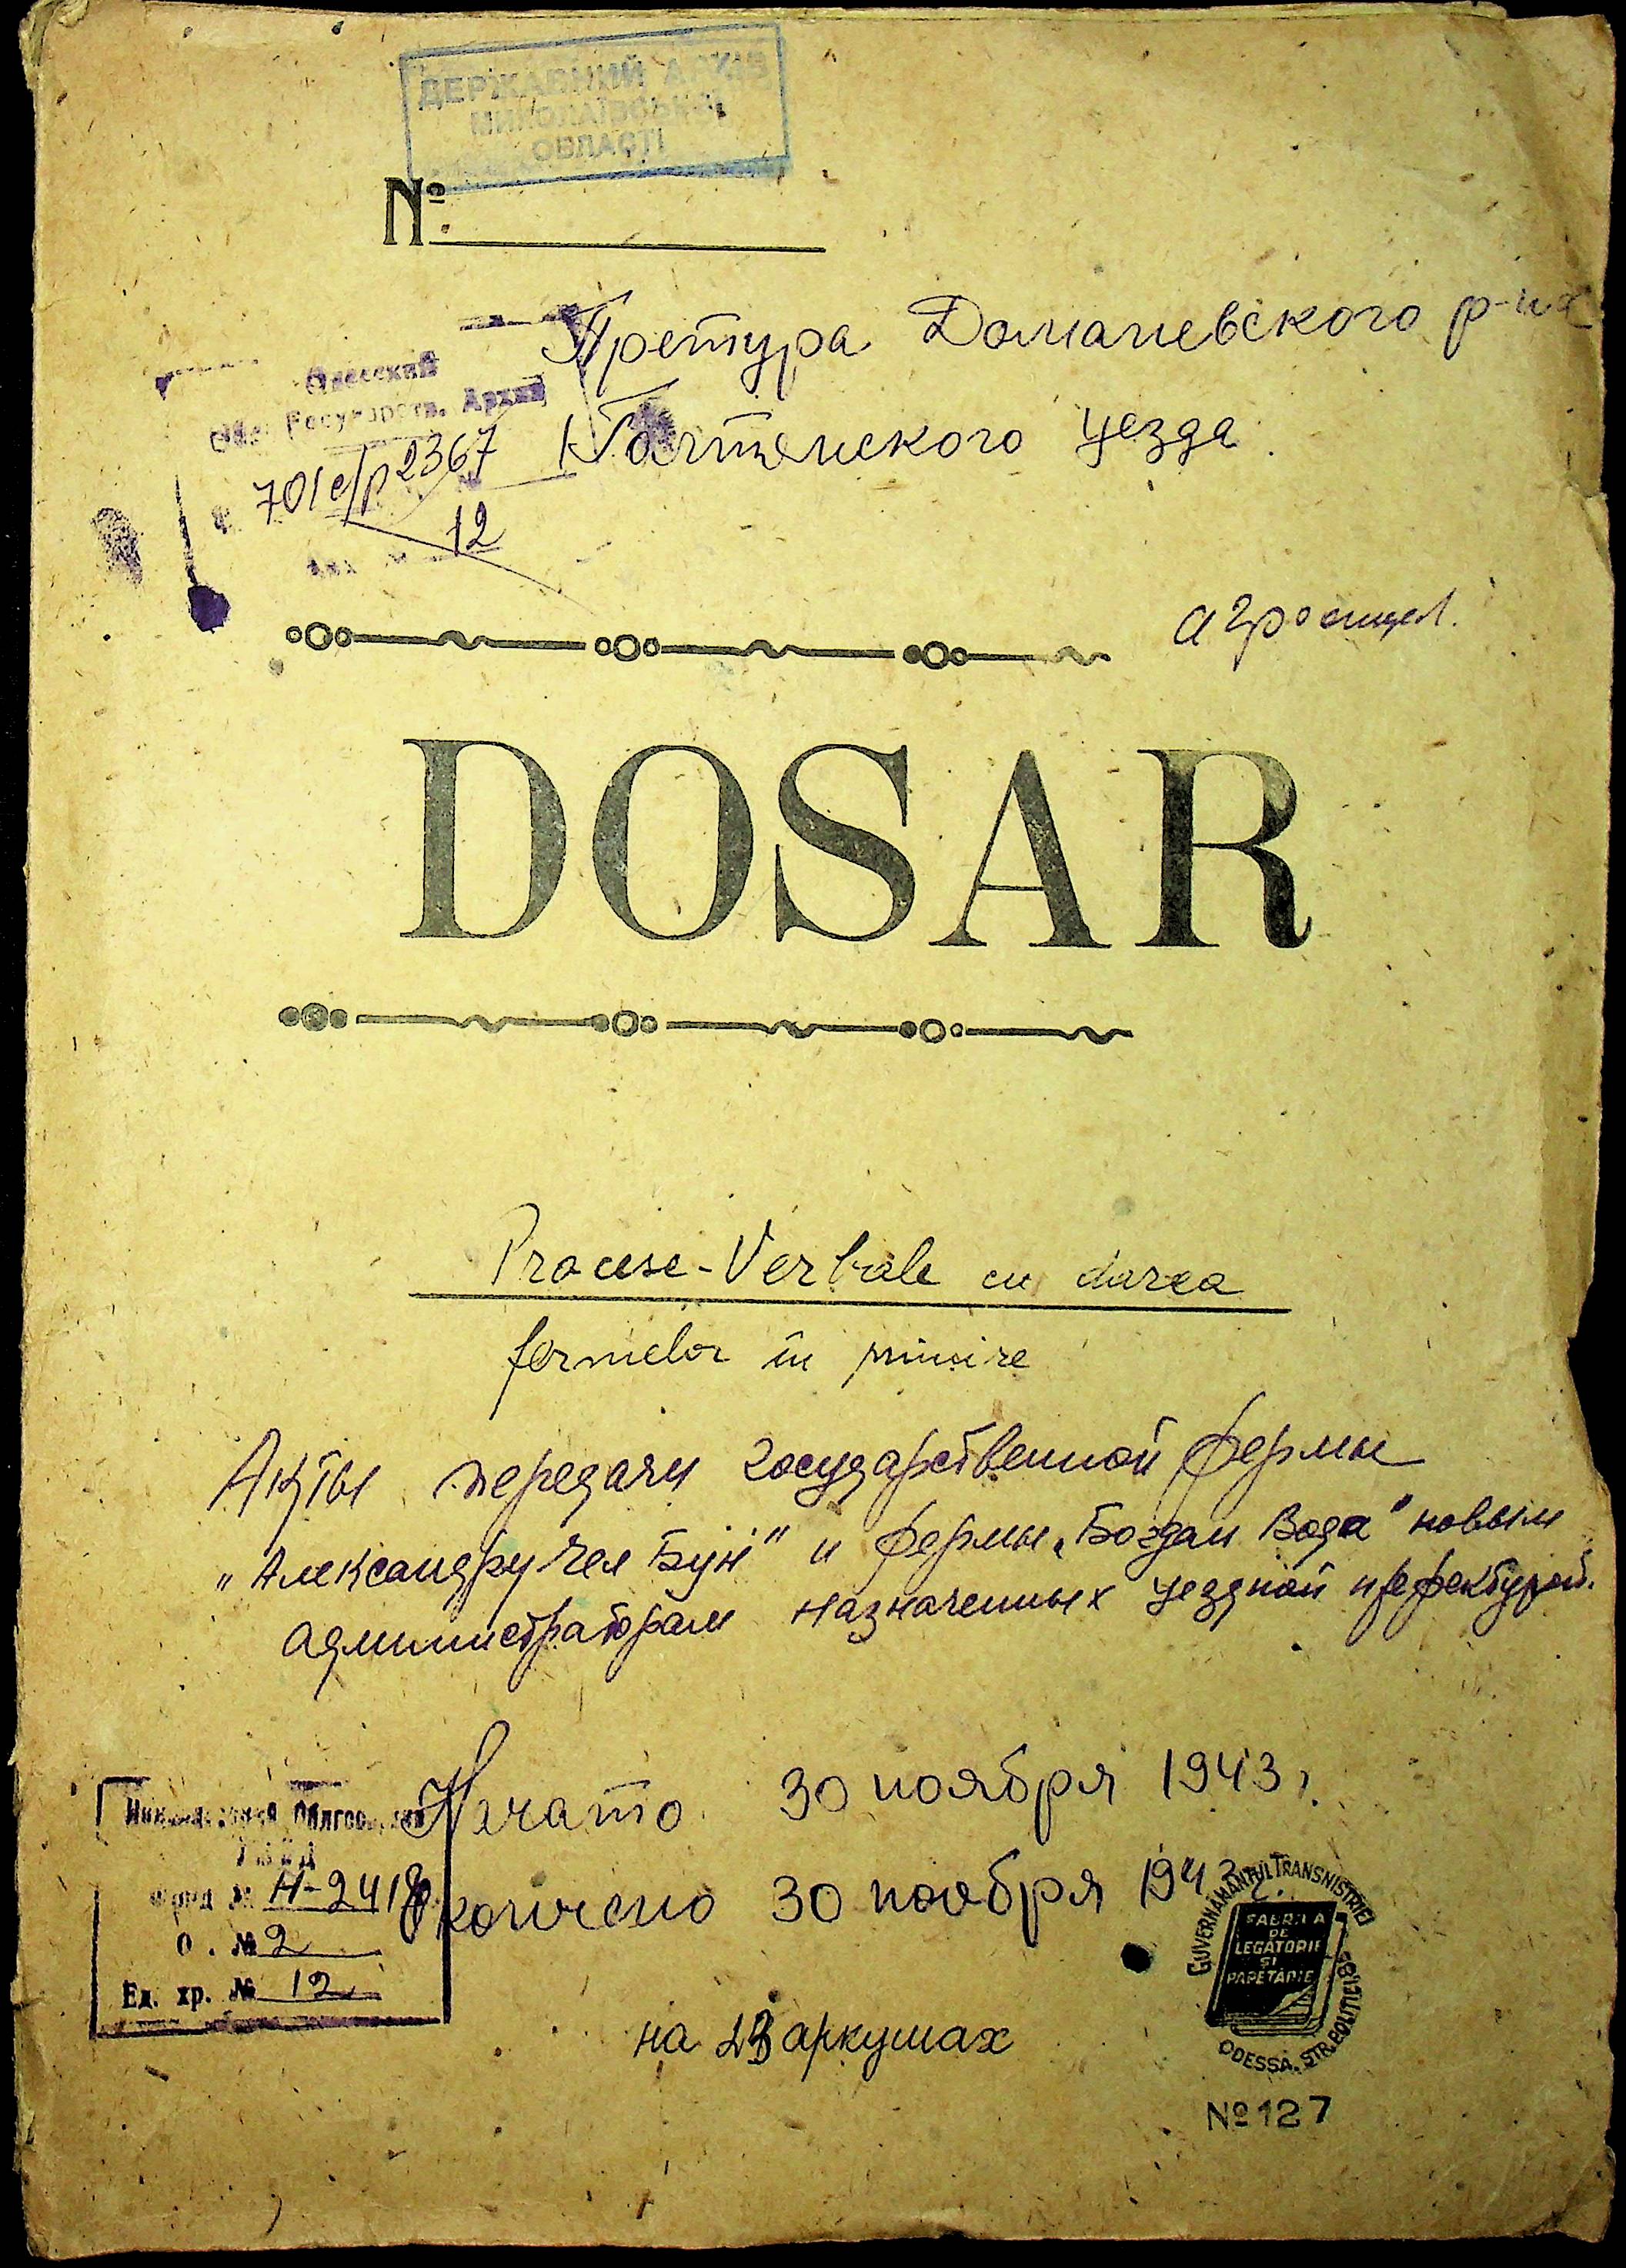 ДЕРЖАВНИЙ АРХІВ
МИКОЛАЇВСЬКОЇ
ОБЛАСТІ
№
Претура Доманевского р-на
Голтянского уезда
Одесский
Обл. Государств. Архив
701с/р2367
12
агроотдел.
DOSAR
Procese-Verbale cu darea
fermelor în primire
Акты передачи государственной фермы
"Александру чел Бун" и фермы "Богдан Вода" новым
администраторам назначенных уездной префектурой.
Начато 30 ноября 1943 г.
Окончено 30 ноября 1943 г.
Фонд № Н-2418
О. № 2
Ед. хр. № 12
на 23 аркушах
GUVERNĂMÂNTUL TRANSNISTRIEI
FABRICA
DE
LEGĂTORIE
ȘI
PAPETĂRIE
ODESSA. STR. POLITICI 38
№ 127